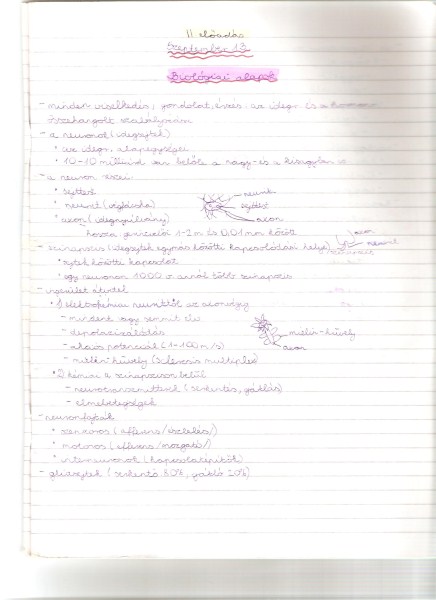 II előadás
Szeptember 13.
Biológiai alapok
- minden viselkedés, gondolat, érzés, az idegr. és a
összehangolt szabályozása
- a neuronok (idegsejtek)
• az idegr. alapegységei
• 10-10 milliárd van belőle a nagy- és a kisagyban
- a neuron részei:
• sejttest
• neurit (végfácska)
• axon (idegnyúlvány)
neurit
sejttest
axon
hossza 1-2 m és 0,01 mm között
- szinapszis (idegsejtek egymás közötti kapcsolódási helye)
axon
neurit
• sejtek közötti kapcsolat
• egy neuronon 1000 v. annál több szinapszis
- ingerület átvitel
• 1) elektrofémiai neurittól az axonvégig
- mindent vagy semmit elv
- depolarizálódás
- akciós potenciál (1-100 m/s)
- mielin-hüvely (Sclerosis multiplex)
mielin-hüvely
axon
• 2) kémiai a szinapszison belül
- neurotranszmitterek (serkentés, gátlás)
- elmebetegségek
- neuronfajták
• szenzoros (afferens/észlelés/)
• motoros (efferens/mozgató/)
• interneuronok (kapcsolatépítők)
- gliasejtek (serkentő 80%, gátló 20%)